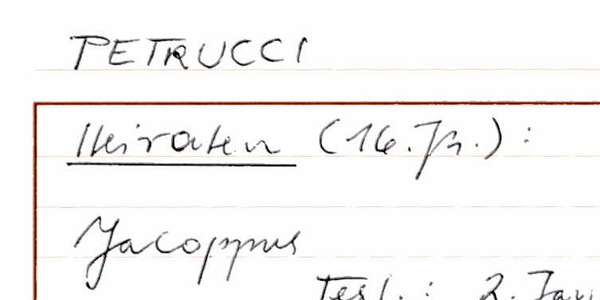 PETRUCCI
Heiraten (16. Jh.) :
Jacoppus
Test. : 2. Jan